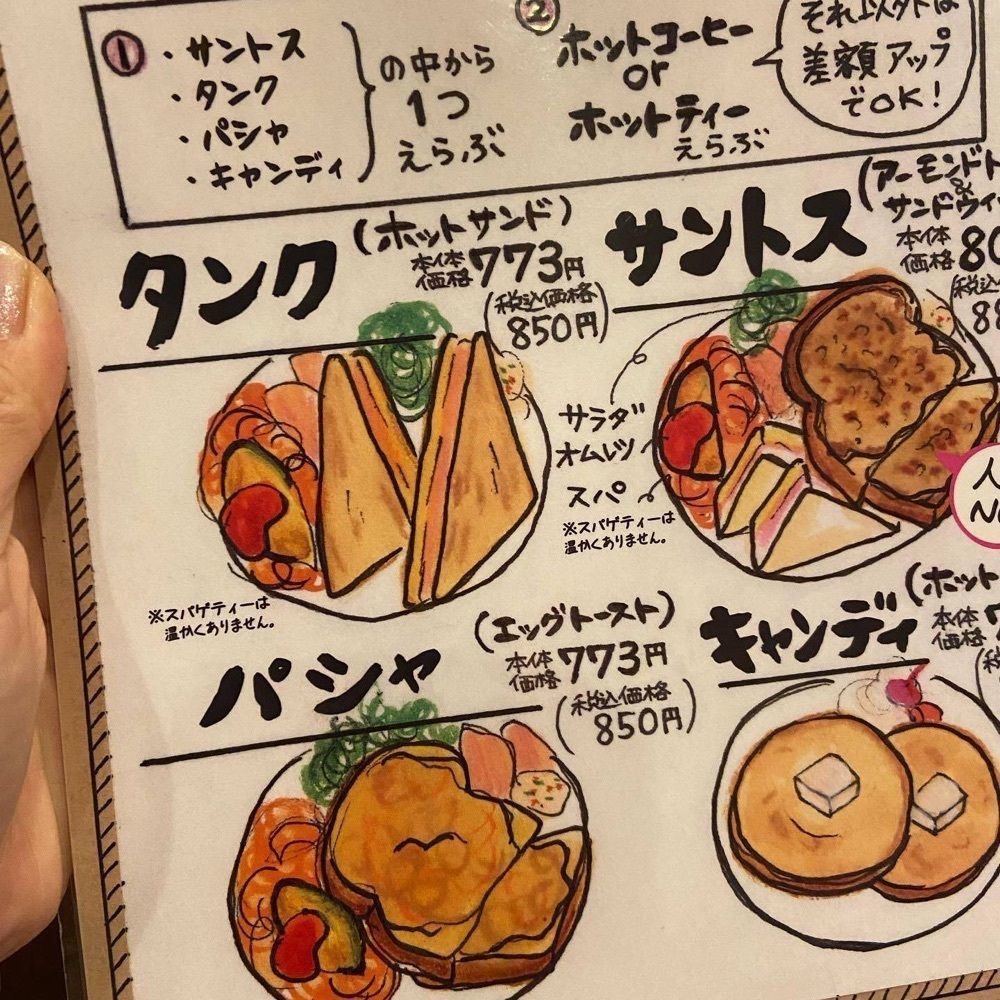 ①
・サントス
・タンク
・パシャ
・キャンディ
の中から
1つ
えらぶ
②
ホットコーヒー
or
ホットティー
えらぶ
それ以外は
差額アップ
でOK!
タンク
(ホットサンド)
本体価格773円
(税込価格
850円)
※スパゲティーは
温かくありません。
サントス
&
本体価格
サラダ
オムレツ
スパ
※スパゲティーは
温かくありません。
パシャ
(エッグトースト)
本体価格773円
(税込価格
850円)
キャンディ
(ホット
本体価格